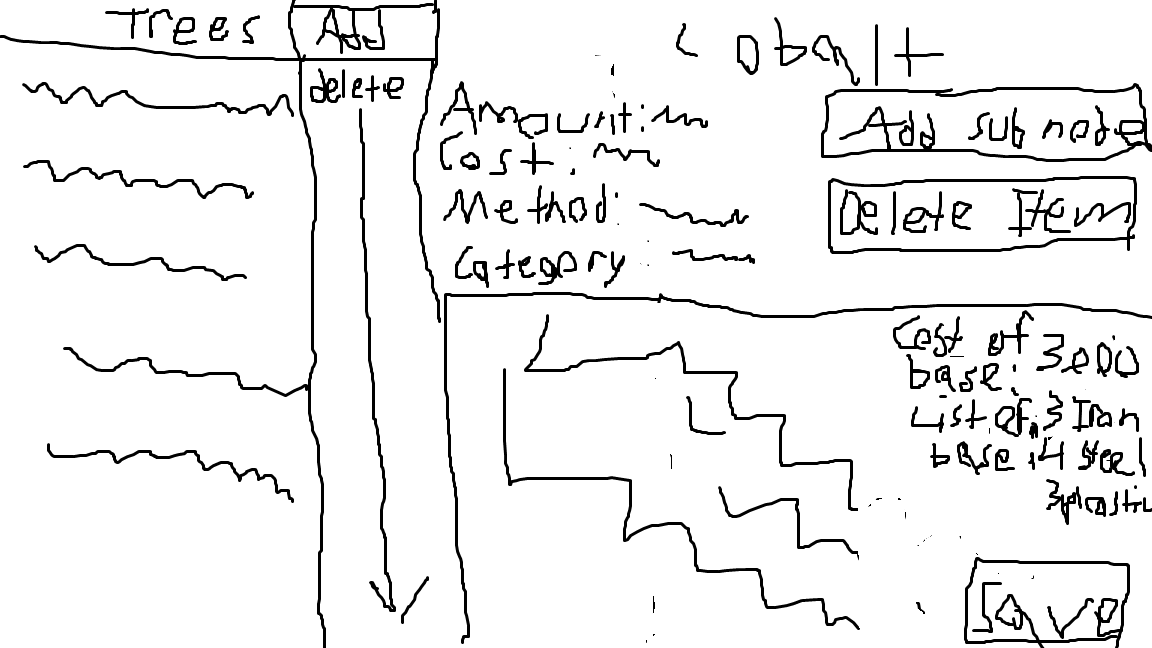 Trees
Add
delete
Cobalt
Amount:
Cost:
Method:
Category
Add sub node
Delete Item
Cost of base: 3000
List of base: 3 Iron
4 Steel
3 plastic
Save